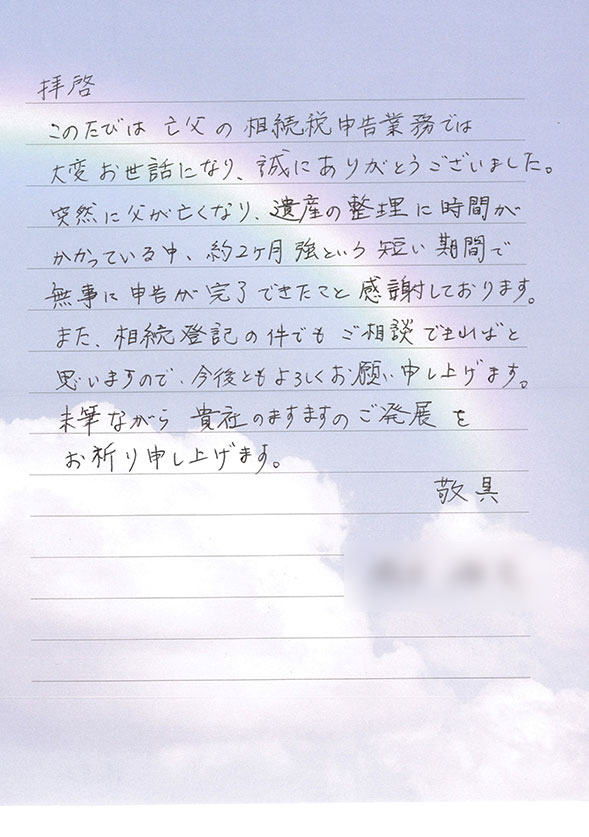 拝啓
このたびは 亡父の 相続税申告業務では
大変お世話になり、誠にありがとうございました。
突然に父が亡くなり、遺産の整理に時間が
かかっている中、約2ヶ月強という短い期間で
無事に申告が完了できたこと感謝しております。
また、相続登記の件でもご相談で出ればと
思いますので、今後ともよろしくお願い申し上げます。
末筆ながら 貴社のますますのご発展を
お祈り申し上げます。
敬具